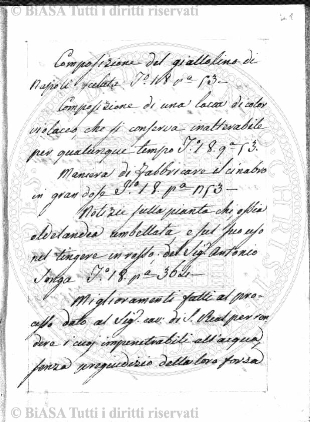 © BiASA Tutti i diritti riservati
Composizione del giallolino di
Napoli svelata T.º 18 pª 53—
Composizione di una lacca di color
violaceo che si conserva inalterabile
per qualunque tempo T.º 18. pª 53.
Maniera di fabbricare il cinabro
in gran dose T.º 18. pª 153—
Notizie sulla pianta che ossia
oldelandia umbellata e sul suo uso
nel tingere in rosso del Sigʳ Antonio
T.º 18. pª 362.
Miglioramenti fatti al pro-
cesso dato al Sigʳ cav. di S. Real per ren
dere i cuoj impenetrabili all'acqua
senza pregiudizio della loro forza
© BiASA Tutti i diritti riservati